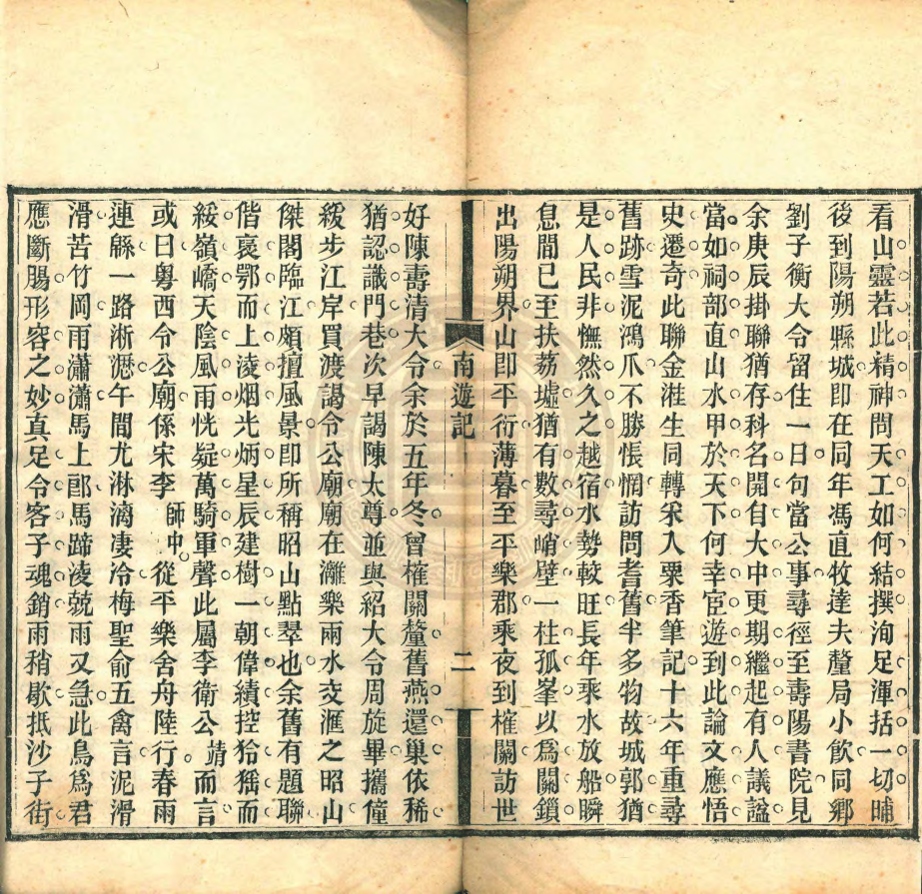 看山靈若此精神問天工如何結撰洵足渾括一切晡
後到陽朔縣城即在同年馮直牧達夫釐局小飲同鄉
劉子衡大令留住一日句當公事尋徑至壽陽書院見
余庚辰掛聯猶存科名開自大中更期繼起有人議諡
當如祠部直山水甲於天下何幸宦遊到此論文應悟
史遷奇此聯金溎生同轉采入粟香筆記十六年重尋
舊跡雪泥鴻爪不勝悵惘訪問耆舊半多物故城郭猶
是人民非憮然久之越宿水勢較旺長年乘水放船瞬
息間已至扶荔墟猶有數尋峭壁一柱孤峯以為關鎖
出陽朔界山即平衍薄暮至平樂郡乘夜到榷關訪世
南遊記
二
好陳壽清大令余於五年冬曾榷關釐舊燕還巢依稀
猶認識門巷次早謁陳太尊並與紹大令周旋畢攜僮
緩步江岸買渡謁令公廟廟在灕樂兩水交滙之昭山
傑閣臨江頗擅風景即所稱昭山點翠也余舊有題聯
偕裒鄂而上淩烟光炳星辰建樹一朝偉績控狑猺而
綏嶺嶠天陰風雨恍疑萬騎軍聲此屬李衛公靖而言
或曰粵西令公廟係宋李師中從平樂舍舟陸行春雨
連緜一路淅瀝午間尤淋漓凄冷梅聖俞五禽言泥滑
滑苦竹岡雨瀟瀟馬上郎馬蹄淩兢雨又急此鳥為君
應斷腸形容之妙真足令客子魂銷雨稍歇抵沙子街